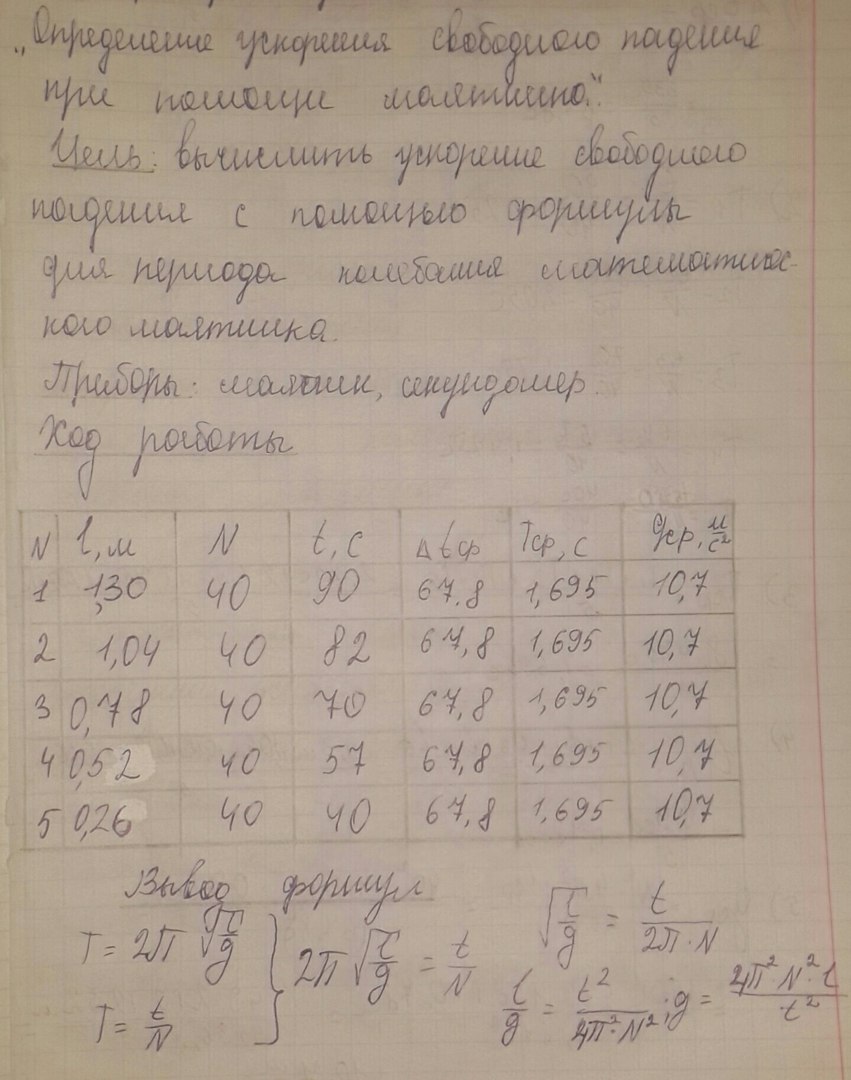 „Определение ускорения свободного падения
при помощи маятника."
Цель: вычислить ускорение свободного
падения с помощью формулы
для периода колебания математичес-
кого маятника.
Приборы: маятник, секундомер.
Ход работы
N l, м N t, с Δtср Tср, с gср, м/с²
1 1,30 40 90 67,8 1,695 10,7
2 1,04 40 82 67,8 1,695 10,7
3 0,78 40 70 67,8 1,695 10,7
4 0,52 40 57 67,8 1,695 10,7
5 0,26 40 40 67,8 1,695 10,7
Вывод формул
T = 2π √(l/g) } 2π √(l/g) = t/N √(l/g) = t/(2π·N)
T = t/N l/g = t²/(4π²·N²); g = (4π²·N²·l)/t²